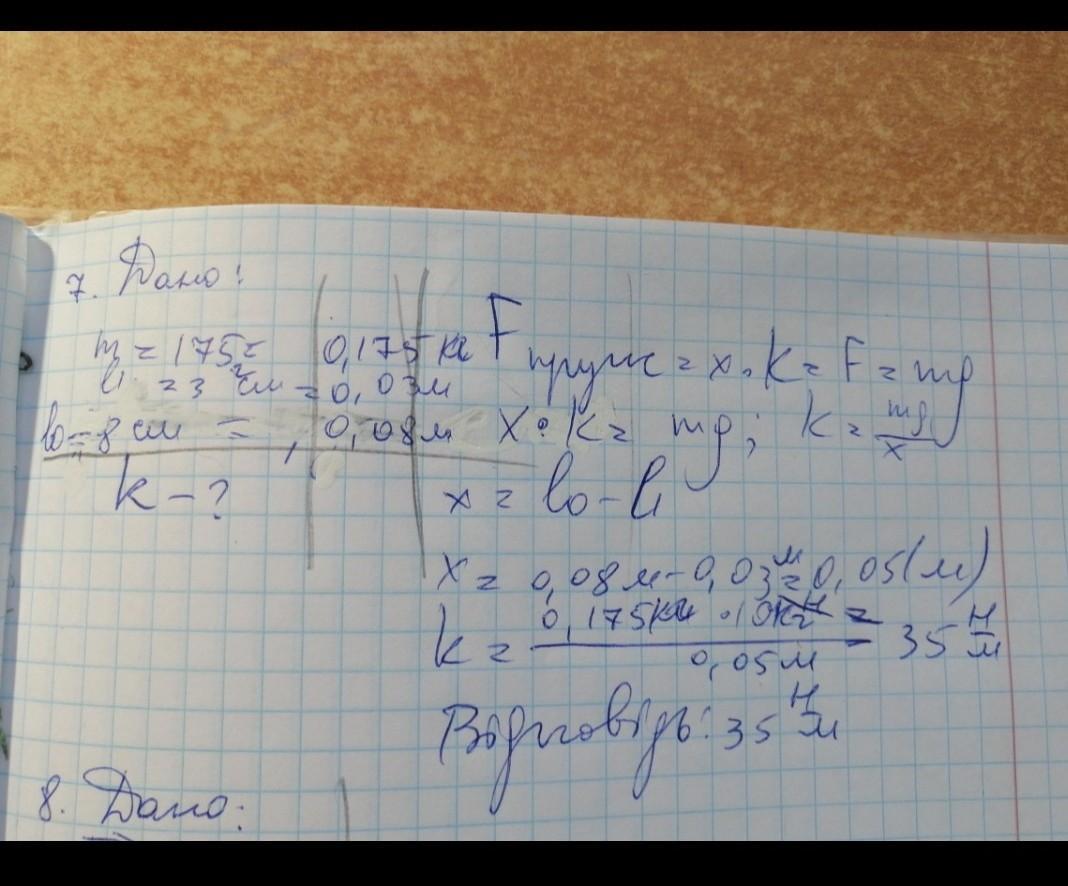 7. Дано:
m = 175г = 0,175 кг
l₁ = 3 см = 0,03м
l₀ = 8 см = 0,08м
k - ?
Fпруж = x · k = F = mg
x · k = mg; k = mg/x
x = l₀ - l₁
x = 0,08м - 0,03м = 0,05(м)
k = 0,175кг · 10 Н/кг / 0,05м = 35 Н/м
Відповідь: 35 Н/м
8. Дано: